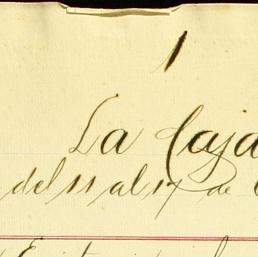 1
La Caja
del 11 al 17 de